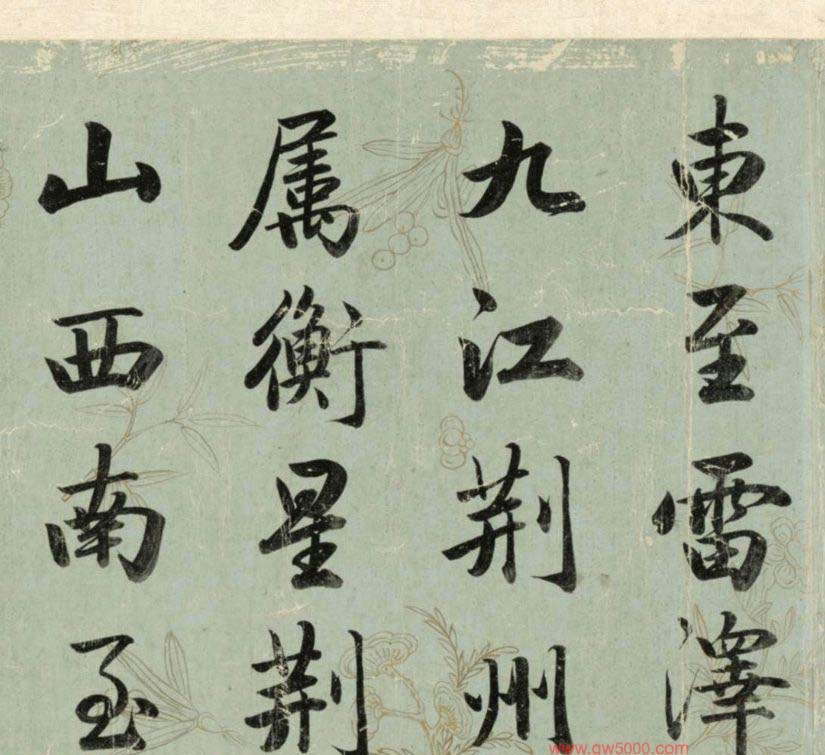 東至雷澤
九江荆州
属衡星荆
山西南至
www.gw5000.com